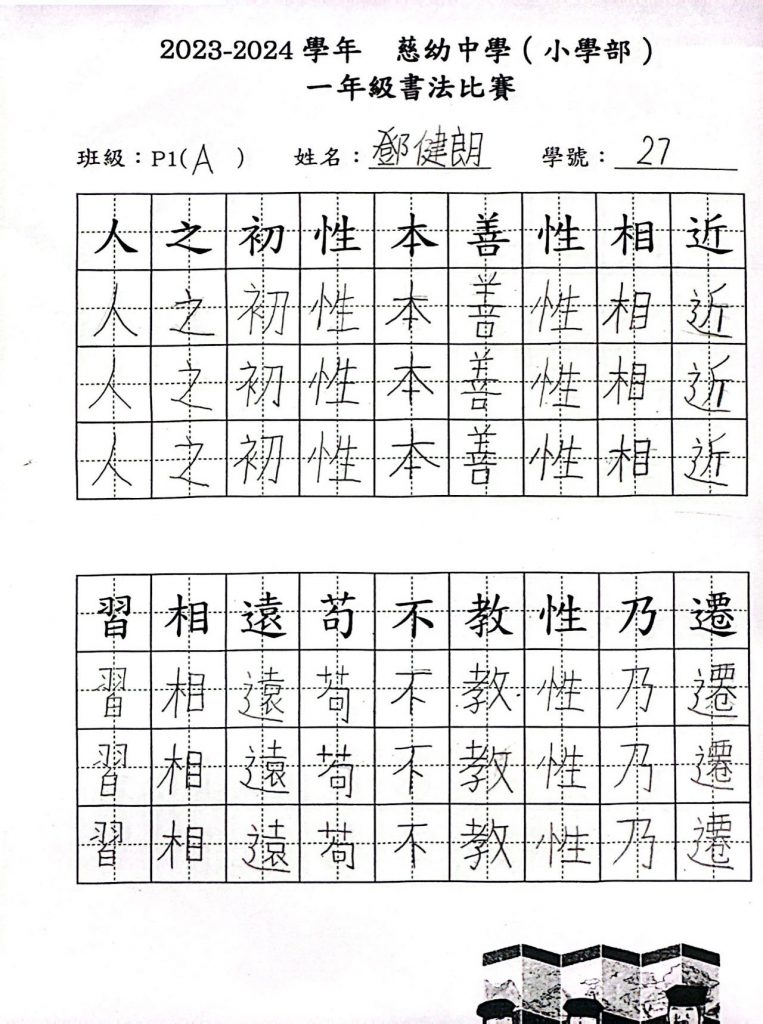 2023-2024 學年 慈幼中學(小學部)
一年級書法比賽
班級：P1(A) 姓名：鄧健朗 學號：27
人之初性本善性相近
人之初性本善性相近
人之初性本善性相近
人之初性本善性相近
習相遠苟不教性乃遷
習相遠苟不教性乃遷
習相遠苟不教性乃遷
習相遠苟不教性乃遷